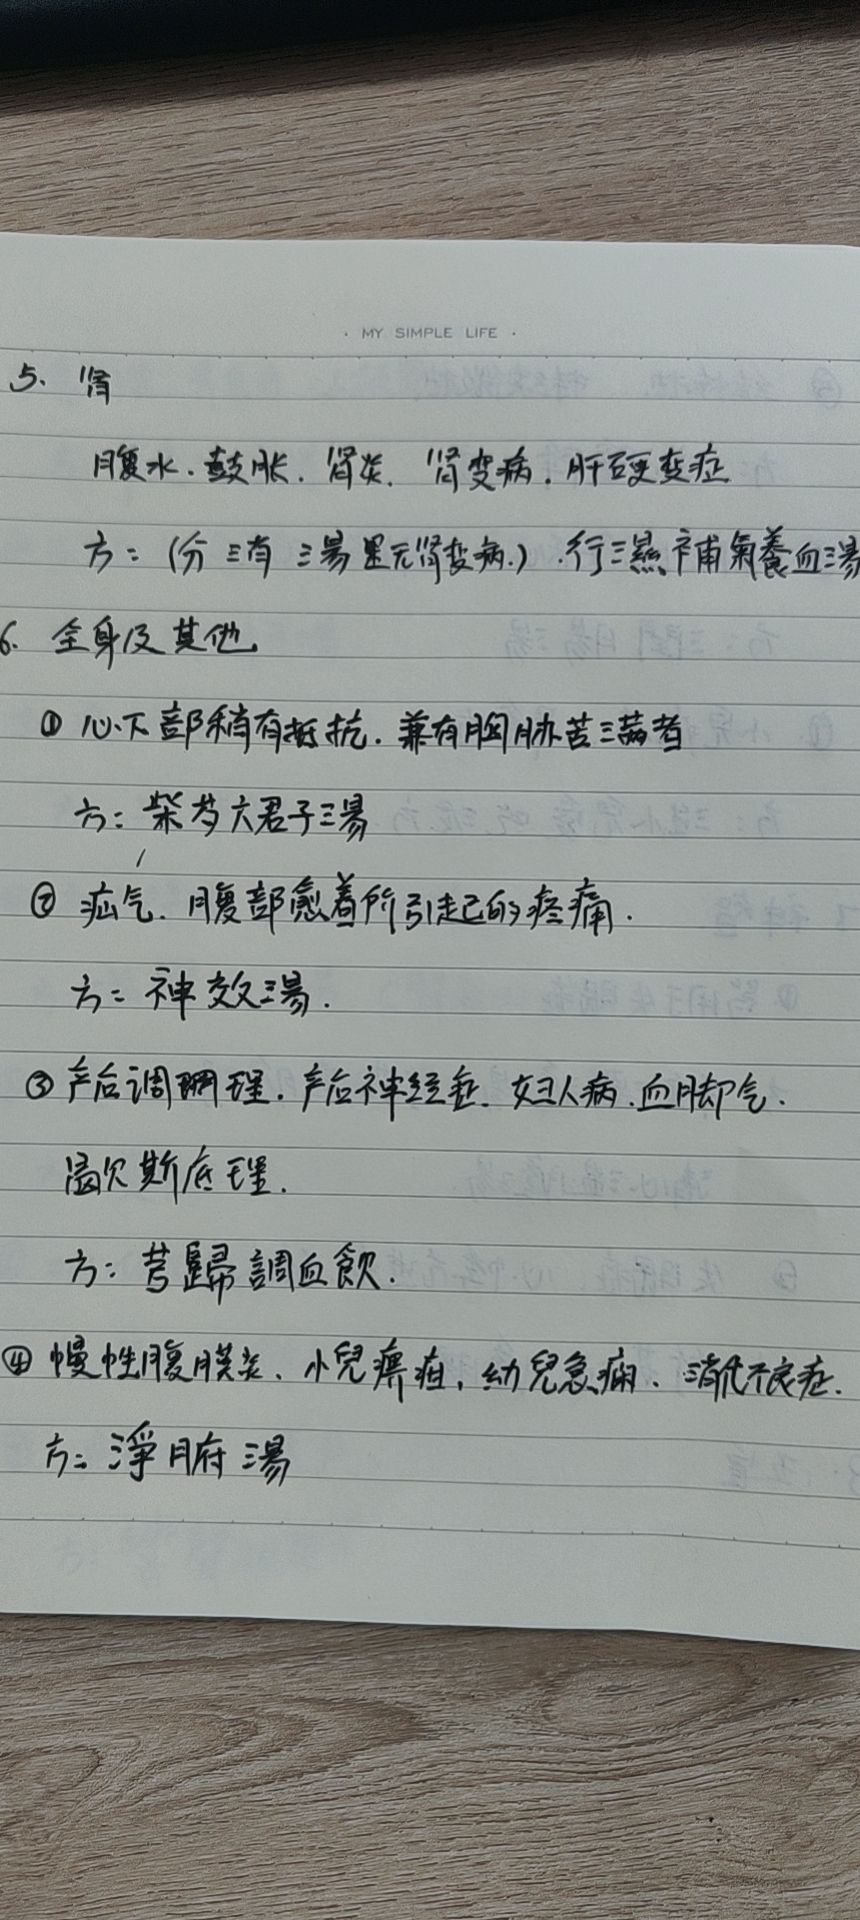 · MY SIMPLE LIFE ·
5. 肾
腹水.鼓胀.肾炎.肾变病.肝硬变症
方:(分消湯里无肾变病.).行濕補氣養血湯
6. 全身及其他
① 心下部稍有抵抗.兼有胸胁苦满者
方:柴芍六君子湯
② 疝气.腹部愈着所引起的疼痛.
方:神效湯.
③ 产后调理.产后神经症.妇人病.血脚气.
歇斯底理.
方:芎歸調血飲.
④ 慢性腹膜炎、小兒痹疽,幼兒急痫、消化不良症.
方:淨腑湯